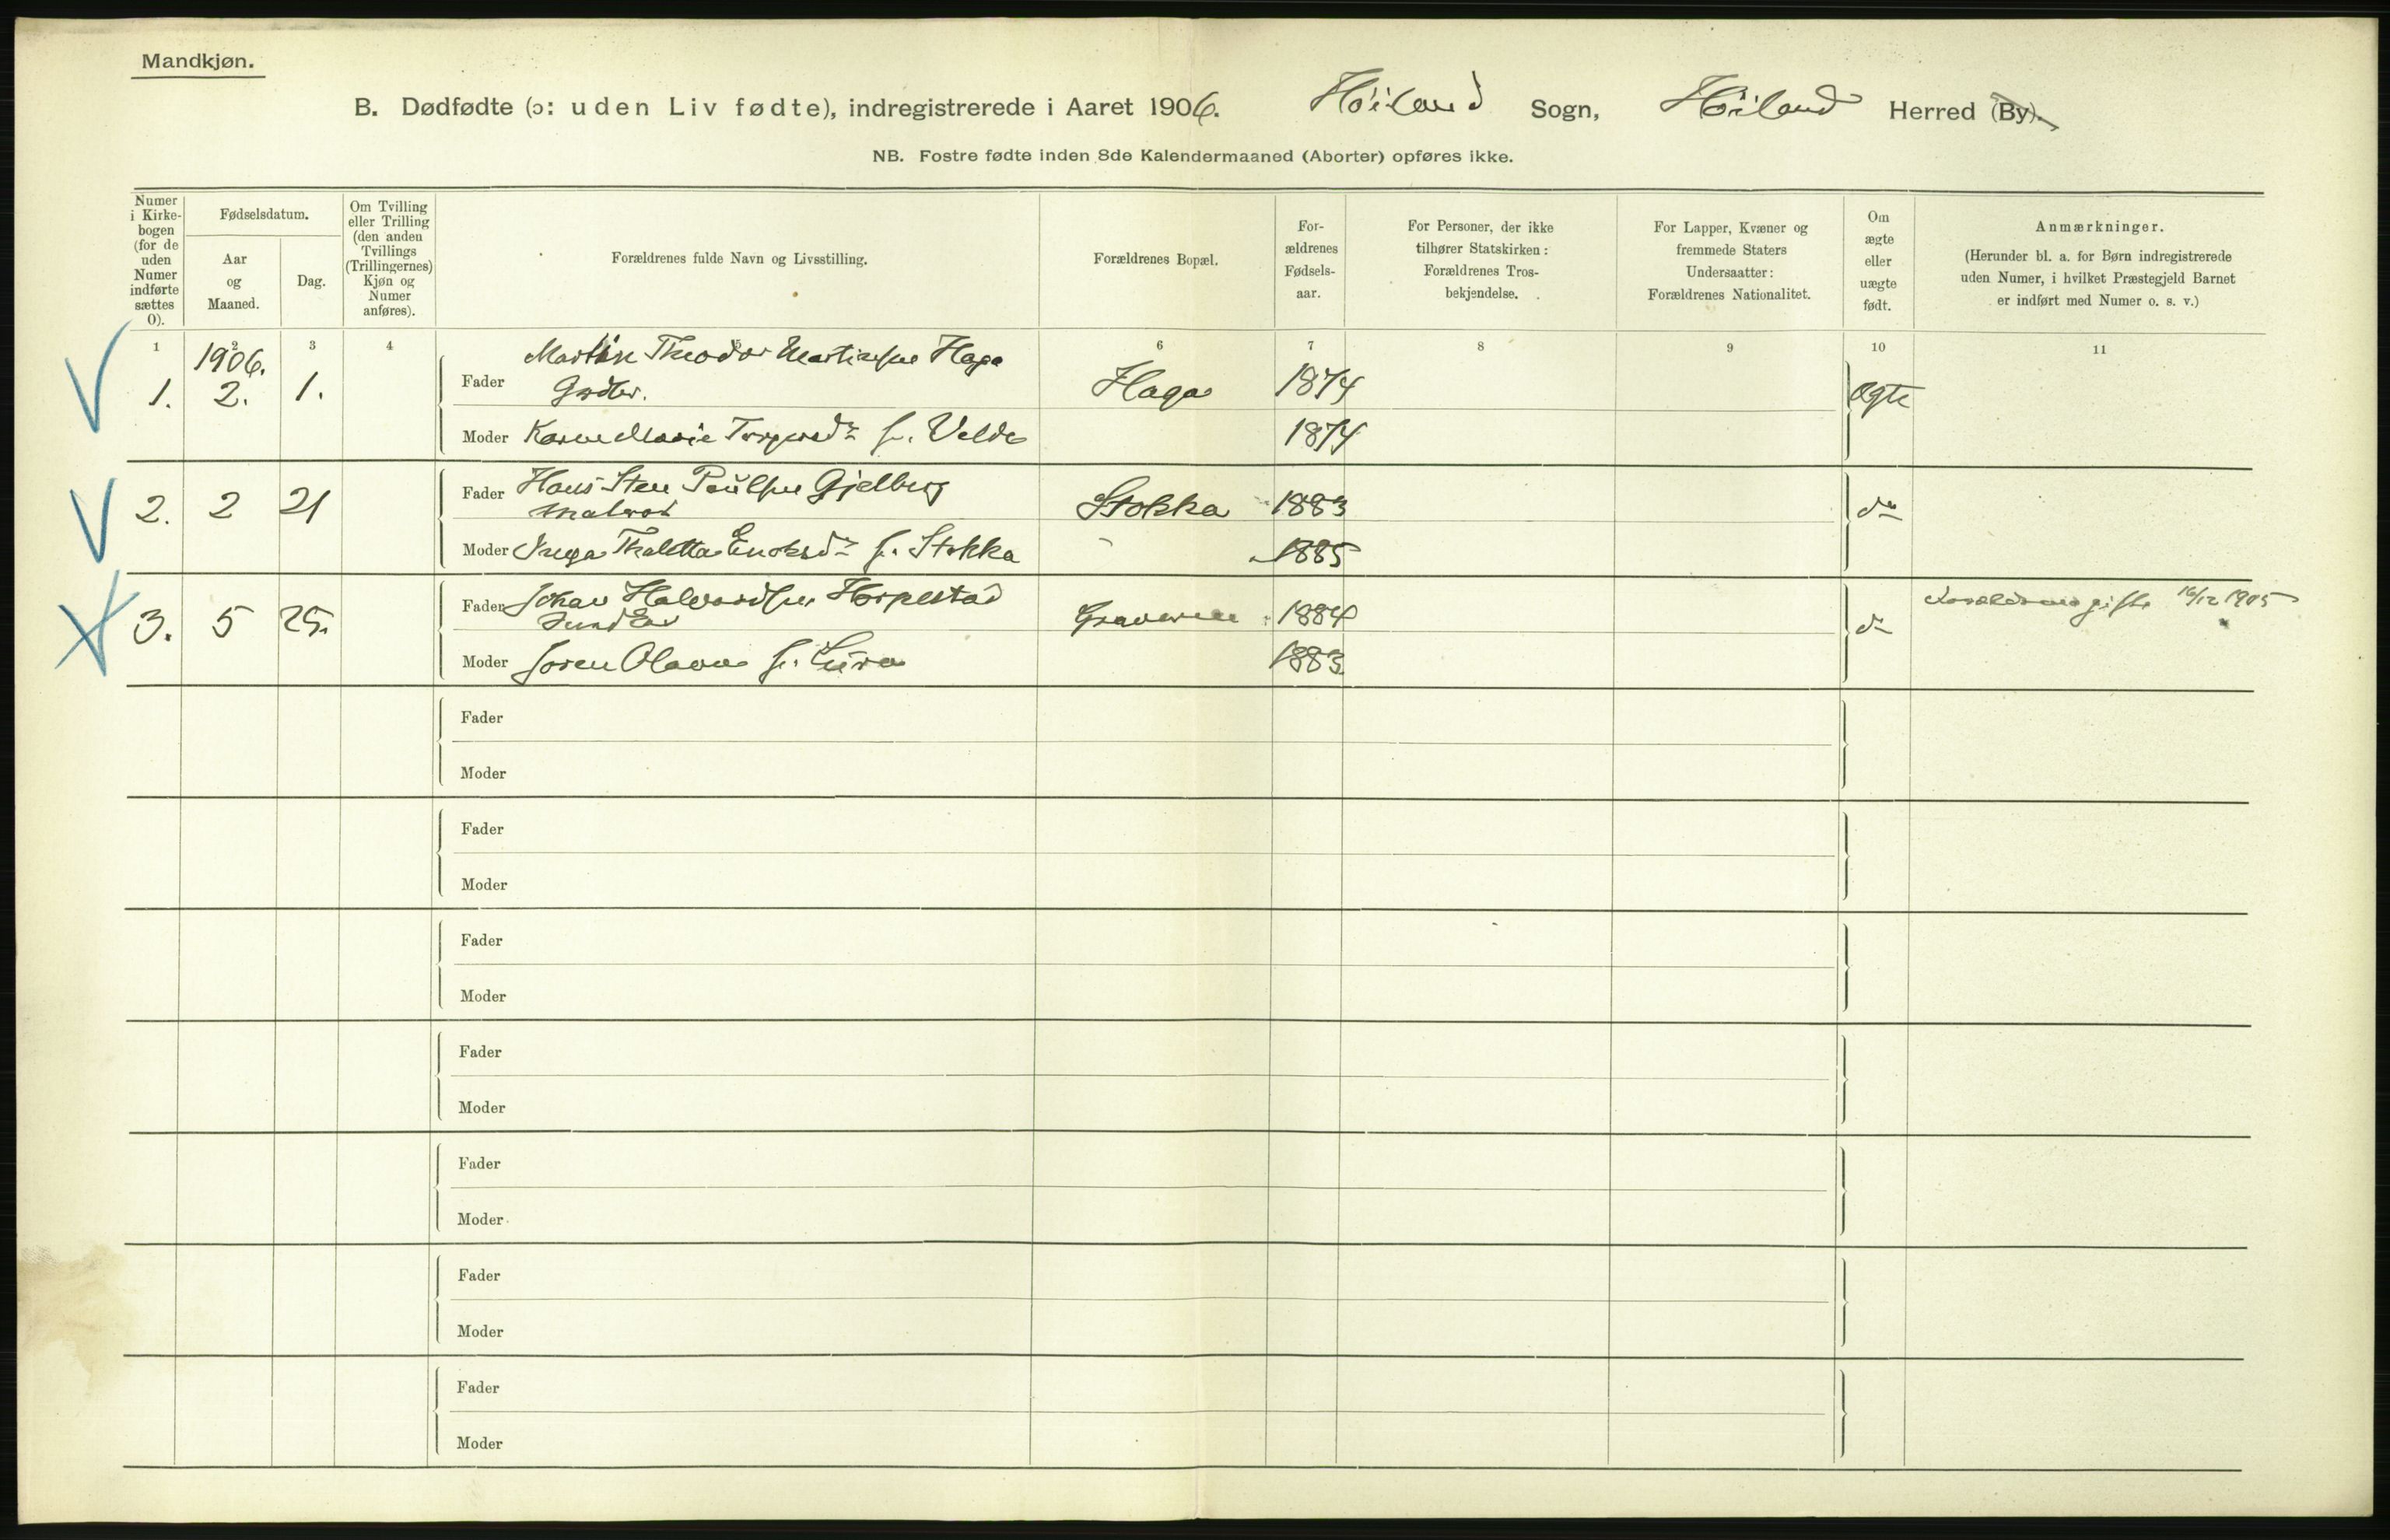 Mandkjøn.
B. Dødfødte (ɔ: uden Liv fødte), indregistrerede i Aaret 1906. Höiland Sogn, Höiland Herred (By).
NB. Fostre fødte inden 8de Kalendermaaned (Aborter) opføres ikke.
Numer i Kirkebogen (for de uden Numer indførte sættes 0).
Fødselsdatum.
Aar og Maaned.
Dag.
Om Tvilling eller Trilling (den anden Tvillings (Trillingernes) Kjøn og Numer anføres).
Forældrenes fulde Navn og Livsstilling.
Forældrenes Bopæl.
Forældrenes Fødselsaar.
For Personer, der ikke tilhører Statskirken: Forældrenes Trosbekjendelse.
For Lapper, Kvæner og fremmede Staters Undersaatter: Forældrenes Nationalitet.
Om ægte eller uægte født.
Anmærkninger.
(Herunder bl. a. for Børn indregistrerede uden Numer, i hvilket Præstegjeld Barnet er indført med Numer o. s. v.)
1 2 3 4 5 6 7 8 9 10 11
1906.
1. 2. 1. Fader Martin Theodor Martinsen Haga Haga 1874 ægte
Grdbr.
Moder Karen Marie Torgersdr f. Velde 1874
2. 2 21 Fader Hans Sten Paulsen Gjelberg Stokka 1883 do
Moder Inga Thaletta Enoksdr f. Stokka 1885
3. 5 25. Fader Johan Halvordsen Horpestad Graveren 1884 do Forældrene gifte 16/12 1905
Moder Soren Olava f. Lura 1883
Fader
Moder
Fader
Moder
Fader
Moder
Fader
Moder
Fader
Moder
Fader
Moder
Fader
Moder